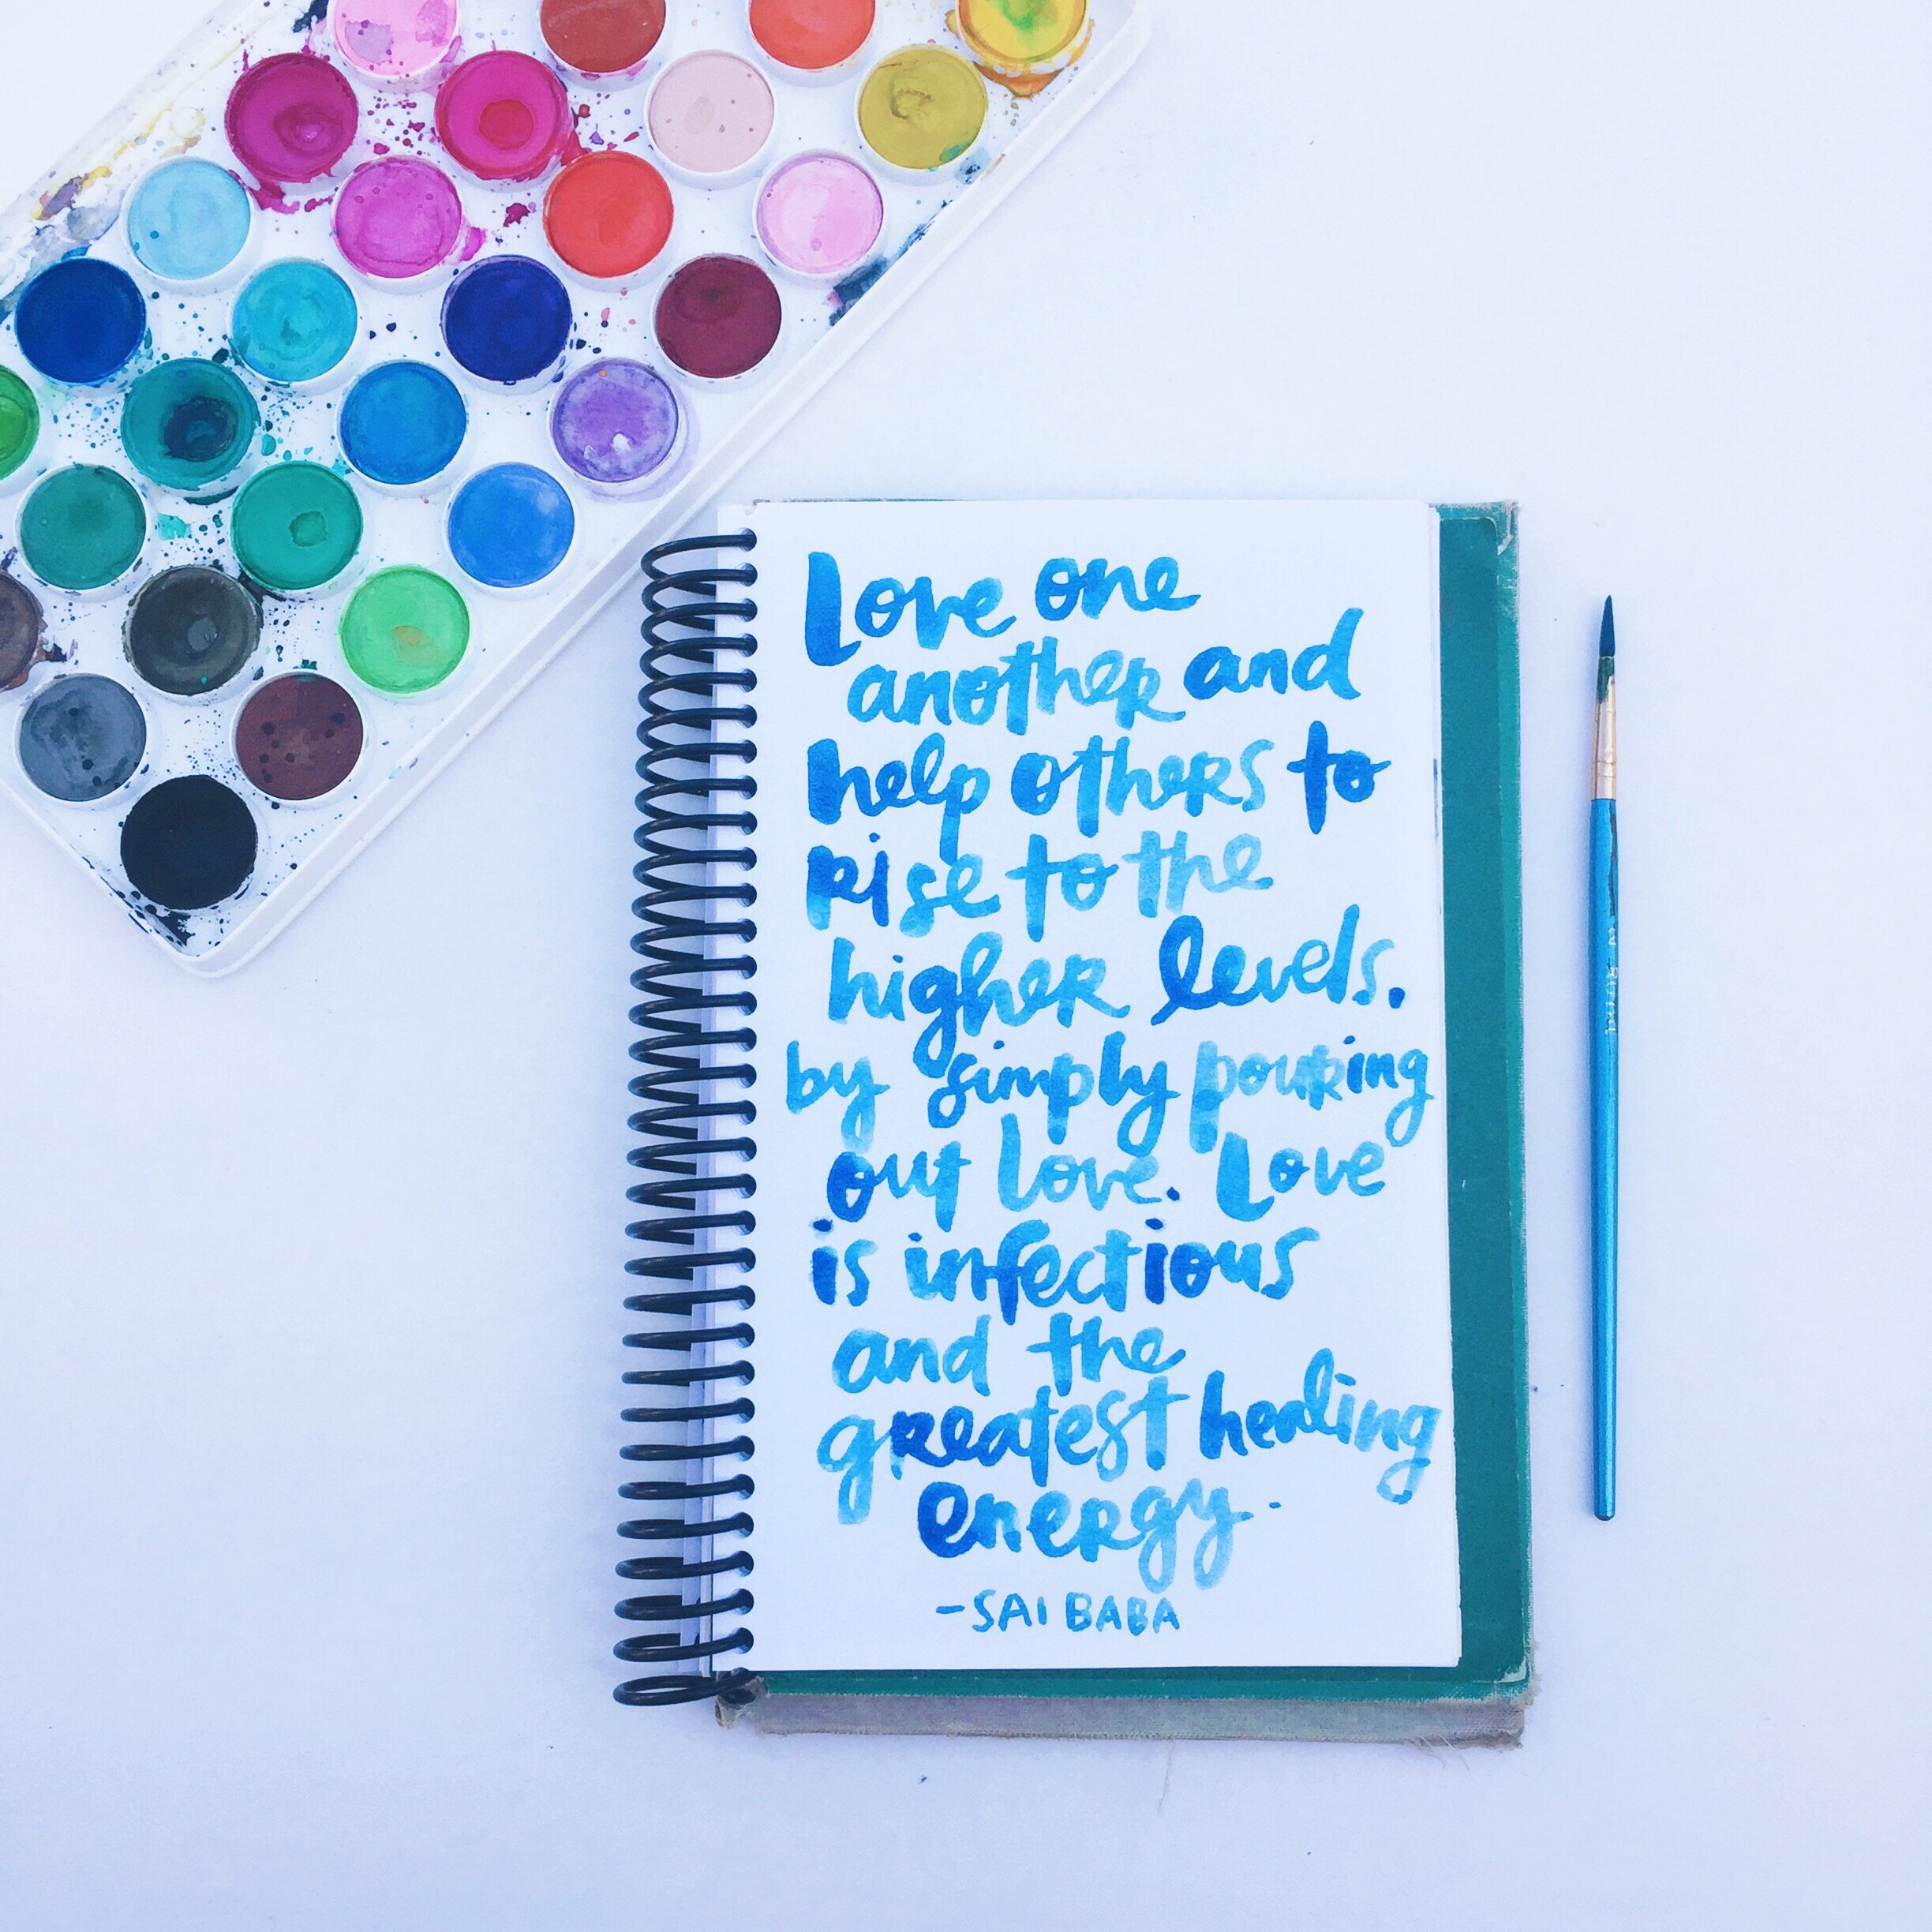 Love one
another and
help others to
rise to the
higher levels.
by simply pouring
out love. Love
is infectious
and the
greatest healing
energy.
-SAI BABA